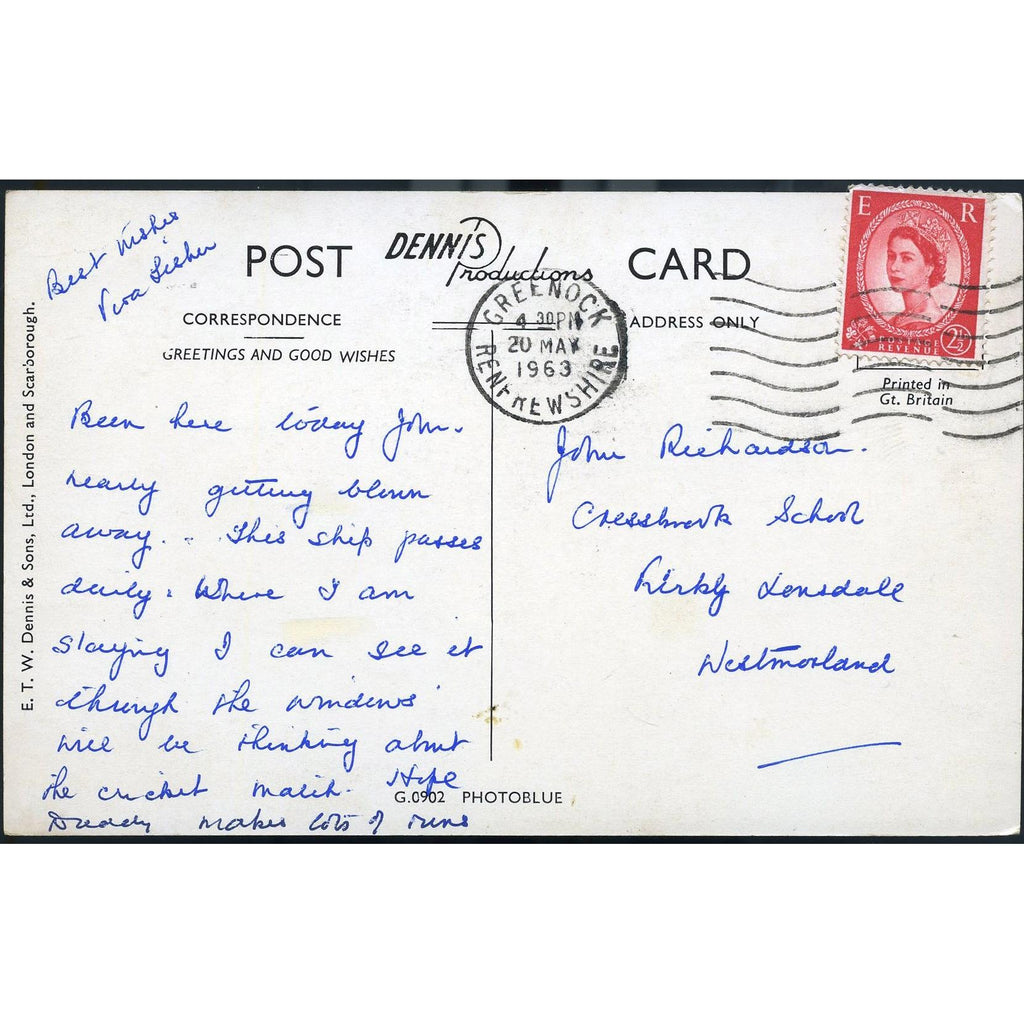 Best wishes
POST DENNIS Productions CARD
CORRESPONDENCE
ADDRESS ONLY
GREETINGS AND GOOD WISHES
GREENOCK
4 30PM
20 MAY
1963
RENFREWSHIRE
E R
POSTAGE
REVENUE
2½D
Printed in
Gt. Britain
E. T. W. Dennis & Sons, Ltd., London and Scarborough.
Been here today John.
nearly getting blown
away. . This ship passes
daily. Where I am
staying I can see it
through the windows
will be thinking about
the cricket match. Hope
Daddy makes lots of runs
John Richardson.
Cressbrook School
Kirkby Lonsdale
Westmorland
G.0902 PHOTOBLUE